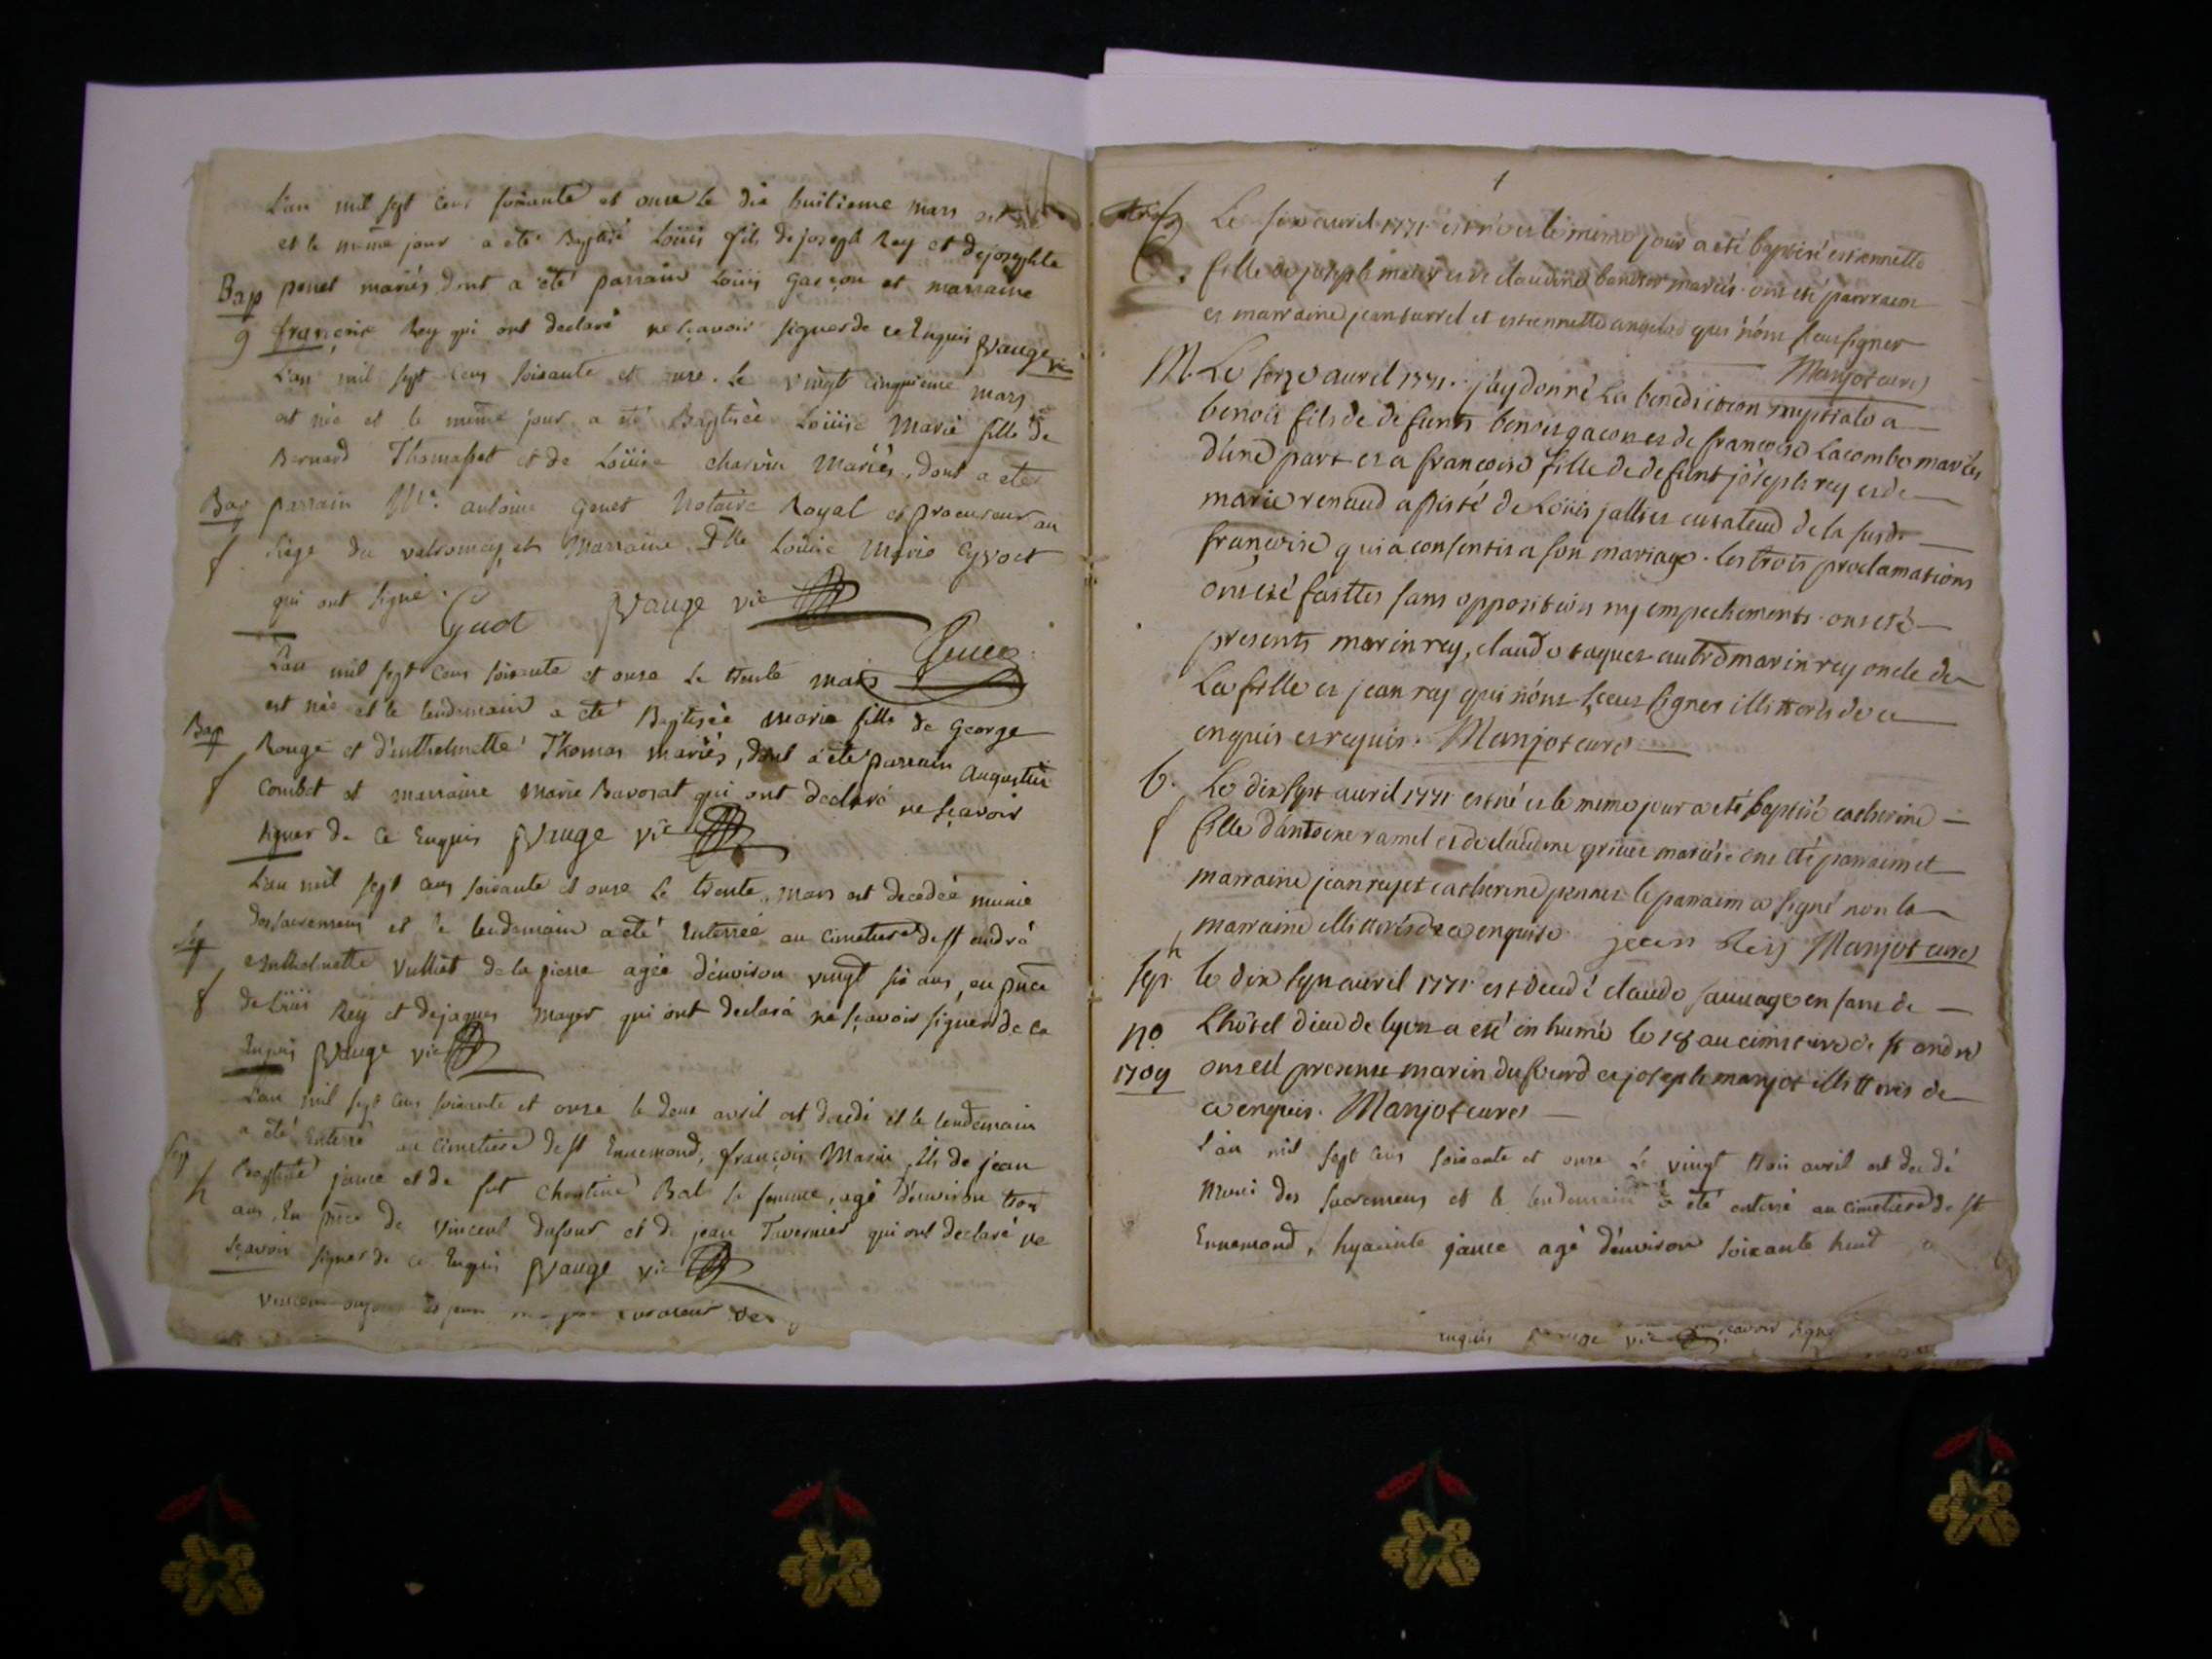 L'an mil sept cens soixante et onze le dix huitieme mars est né
et le même jour a eté Baptisé Loüis fils de joseph Rey et de josephte
Bap penet mariés dont a été parrain Loüis Gasçon et marraine
g françoise Rey qui ont declaré ne sçavoir signer de ce Enquis Vauge vic
L'an mil sept cens soixante et onze le vingt cinquieme mars
est née et le même jour a eté Baptisée Loüise Marie fille de
Bernard Thomasset et de Loüise charvin Mariés, dont a eté
Bap parrain Me. antoine Genet Notaire Royal et procureur au
f siege du valromey, et Marraine Dlle Loüise Marie Cyvoct
qui ont signé. Vauge vic
L'an mil sept cens soixante et onze le trente mars
est née et le lendemain a eté Baptisée Marie fille de George
Bap Rouge et d'enthelmette Thomas mariés, dont a eté parrain Augustin
f Combet et marraine Marie Bavozat qui ont declaré ne sçavoir
signer de ce Enquis Vauge vic
L'an mil sept cens soixante et onze le trente mars est decedée munie
des sacremens et le lendemain a eté Enterrée au cimetiere de st andré
Sep Enthelmette Vulliet de la pierre agée d'environ vingt six ans, en pnce
f de Loüis Rey et de jaques Mayer qui ont declaré ne sçavoir signer de ce
Enquis Vauge vic
L'an mil sept cens soixante et onze le deux avril est decedé et le lendemain
a été Enterré au cimetiere de st Ennemond, françois Marin fils de jean
Sep Baptiste jance et de sa femme, agé d'environ trois
h ans, En pnce de Vincent dufour et de jean Tavernier qui ont declaré ne
sçavoir signer de ce Enquis Vauge vic
1
Le six avril 1771 est né et le même jour a eté baptisé estiennette
B. fille de joseph et de claudine mariés. ont eté parrain
et marraine jean surrel et estiennette qui n'ont sceu signer
Manjot curé
M. Le seize avril 1771. j'ay donné La benediction nuptiale a
benoit fils de defunts benoit gacon et de françoise Lacombe mariés
d'une part et a françoise fille de defunt joseph rey et de
marie renaud assisté de Loüis jallier curateur de la susde
françoise qui a consentis a son mariage. les trois proclamations
ont eté faittes sans opposition ny empechements. ont eté
presents marin rey, claude autre marin rey oncle de
La fille et jean rey qui n'ont sceu signer illitterés de ce
enquis et requis. Manjot curé
b. Le dix sept avril 1771 est né et le meme jour a eté baptisé catherine
f fille d'antoine ramel et de claudine mariés. ont eté parrain et
marraine jean rey et catherine le parrain a signé non la
marraine illitterés de ce enquise jean Rey Manjot curé
sep. h le dix sept avril 1771 est decedé claude sauvage enfant de
no. Lhôtel dieu de lyon a eté inhumé le 18 au cimetiere de st andré
1709 ont eté present marin dufourd et joseph manjot illitterés de
ce enquis. Manjot curé
L'an mil sept cens soixante et onze le vingt trois avril est decedé
Muni des sacremens et le lendemain a eté enterré au cimetiere de st
Ennemond, hyacinte jance agé d'environ soixante huit
enquis vic sçavoir signer